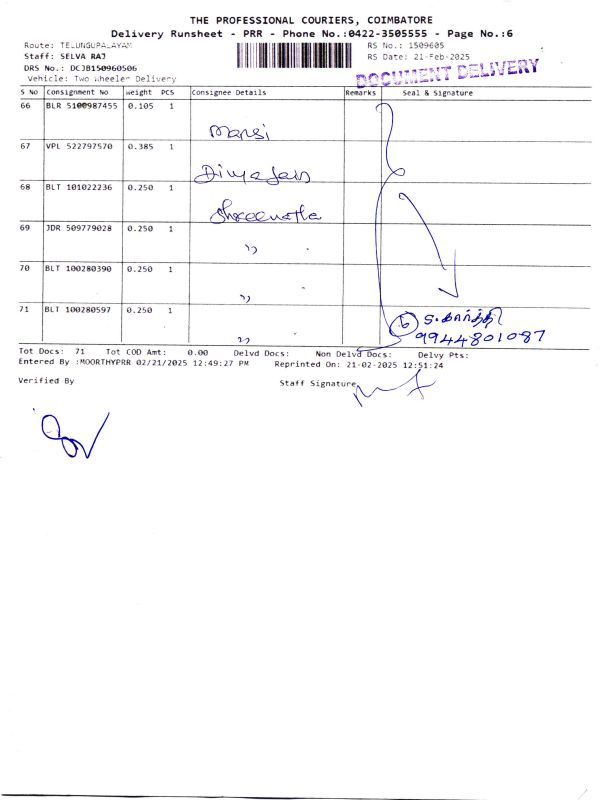 THE PROFESSIONAL COURIERS, COIMBATORE
Delivery Runsheet - PRR - Phone No.:0422-3505555 - Page No.:6
Route: TELUNGUPALAYAM
RS No.: 1509605
Staff: SELVA RAJ
RS Date: 21-Feb-2025
DRS No.: DCJB150960506
DOCUMENT DELIVERY
Vehicle: Two Wheeler Delivery
S No Consignment No Weight PCS Consignee Details Remarks Seal & Signature
66 BLR 5100987455 0.105 1
Mansi
67 VPL 522797570 0.385 1
Divya Jain
68 BLT 101022236 0.250 1
Shreenatha
69 JDR 509779028 0.250 1
"
70 BLT 100280390 0.250 1
"
71 BLT 100280597 0.250 1
"
6 S. கார்த்தி
9944801087
Tot Docs: 71 Tot COD Amt: 0.00 Delvd Docs: Non Delvd Docs: Delvy Pts:
Entered By :MOORTHYPRR 02/21/2025 12:49:27 PM Reprinted On: 21-02-2025 12:51:24
Verified By
Staff Signature